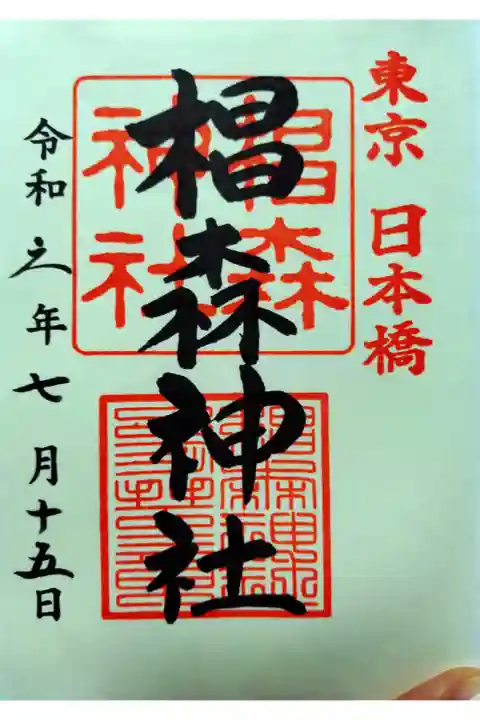 東京 日本橋
椙森神社
椙森
神社
令和元年七月十五日